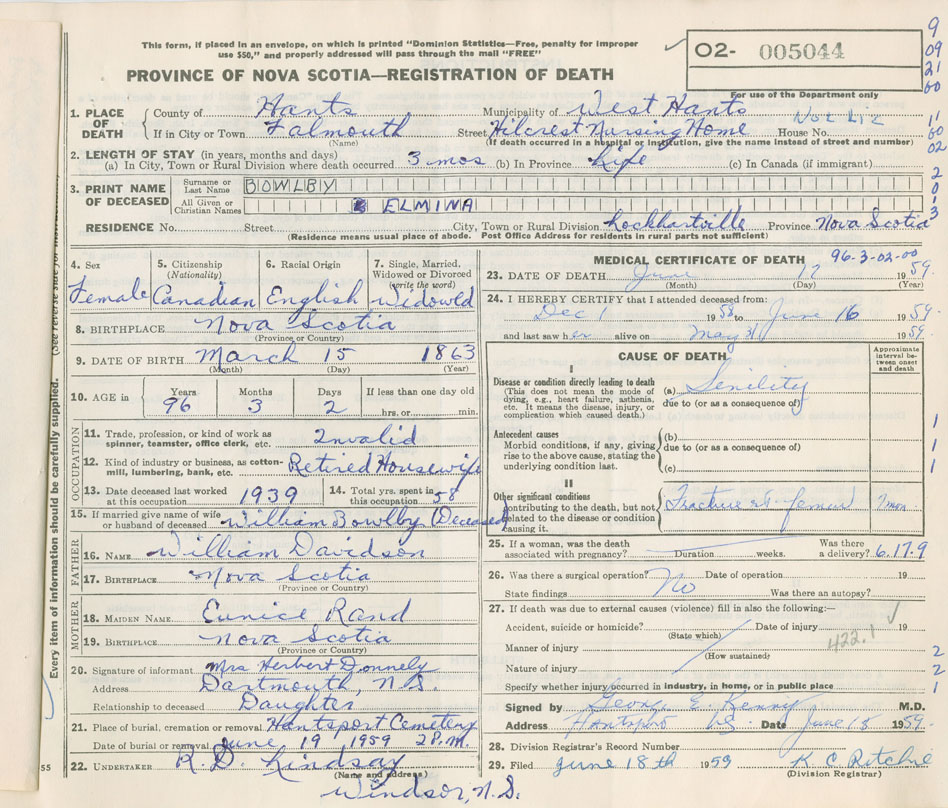 This form, if placed in an envelope, on which is printed "Dominion Statistics—Free, penalty for improper
use $50," and properly addressed will pass through the mail "FREE"
PROVINCE OF NOVA SCOTIA—REGISTRATION OF DEATH
O2- 005044
For use of the Department only
9
09
21
00
11
60
02
2
0
1
3
1. PLACE OF DEATH
County of Hants Municipality of West Hants
If in City or Town Falmouth Street Hilcrest Nursing Home House No.
Not Liz
(Name) (If death occurred in a hospital or institution, give the name instead of street and number)
2. LENGTH OF STAY (in years, months and days)
(a) In City, Town or Rural Division where death occurred 3 mos (b) In Province Life (c) In Canada (if immigrant)
3. PRINT NAME OF DECEASED
Surname or Last Name BOWLBY
All Given or Christian Names ELMINA
RESIDENCE No. Street City, Town or Rural Division Lockhartville Province Nova Scotia
(Residence means usual place of abode. Post Office Address for residents in rural parts not sufficient)
4. Sex Female
5. Citizenship (Nationality) Canadian
6. Racial Origin English
7. Single, Married, Widowed or Divorced (write the word) Widowed
8. BIRTHPLACE Nova Scotia
(Province or Country)
9. DATE OF BIRTH March 15 1863
(Month) (Day) (Year)
10. AGE in Years 96 Months 3 Days 2 If less than one day old
hrs. or min.
OCCUPATION
11. Trade, profession, or kind of work as spinner, teamster, office clerk, etc. Invalid
12. Kind of industry or business, as cotton-mill, lumbering, bank, etc. Retired Housewife
13. Date deceased last worked at this occupation 1939
14. Total yrs. spent in this occupation 58
15. If married give name of wife or husband of deceased William Bowlby (Deceased)
FATHER
16. NAME William Davidson
17. BIRTHPLACE Nova Scotia
(Province or Country)
MOTHER
18. MAIDEN NAME Eunice Rand
19. BIRTHPLACE Nova Scotia
(Province or Country)
20. Signature of informant Mrs Herbert Donnely
Address Dartmouth, N.S.
Relationship to deceased Daughter
21. Place of burial, cremation or removal Hantsport Cemetery
Date of burial or removal June 19 1959 2 P.M.
22. UNDERTAKER R.D. Lindsay
(Name and address)
Windsor, N.S.
55
Every item of information should be carefully supplied.
MEDICAL CERTIFICATE OF DEATH 96-3-02-00
23. DATE OF DEATH June 17 1959.
(Month) (Day) (Year)
24. I HEREBY CERTIFY that I attended deceased from:
Dec 1 1958 to June 16 1959.
and last saw her alive on May 31 1959.
CAUSE OF DEATH
Approximate interval between onset and death
I
Disease or condition directly leading to death
(This does not mean the mode of dying, e.g., heart failure, asthenia, etc. It means the disease, injury, or complication which caused death.)
(a) Senility
due to (or as a consequence of)
Antecedent causes
Morbid conditions, if any, giving rise to the above cause, stating the underlying condition last.
(b)
due to (or as a consequence of)
(c)
1
1
1
II
Other significant conditions
contributing to the death, but not related to the disease or condition causing it.
Fracture rt femur 7 mon.
25. If a woman, was the death associated with pregnancy? Duration weeks. Was there a delivery? 6.17.9
26. Was there a surgical operation? No Date of operation 19
State findings Was there an autopsy?
27. If death was due to external causes (violence) fill in also the following:—
Accident, suicide or homicide? Date of injury 19
(State which) 422.1
Manner of injury
(How sustained)
Nature of injury
Specify whether injury occurred in industry, in home, or in public place
2
2
1
Signed by George E. Kenny M.D.
Address Hantsport NS. Date June 18 1959.
28. Division Registrar's Record Number
29. Filed June 18th 1959 K C Ritchie
(Division Registrar)